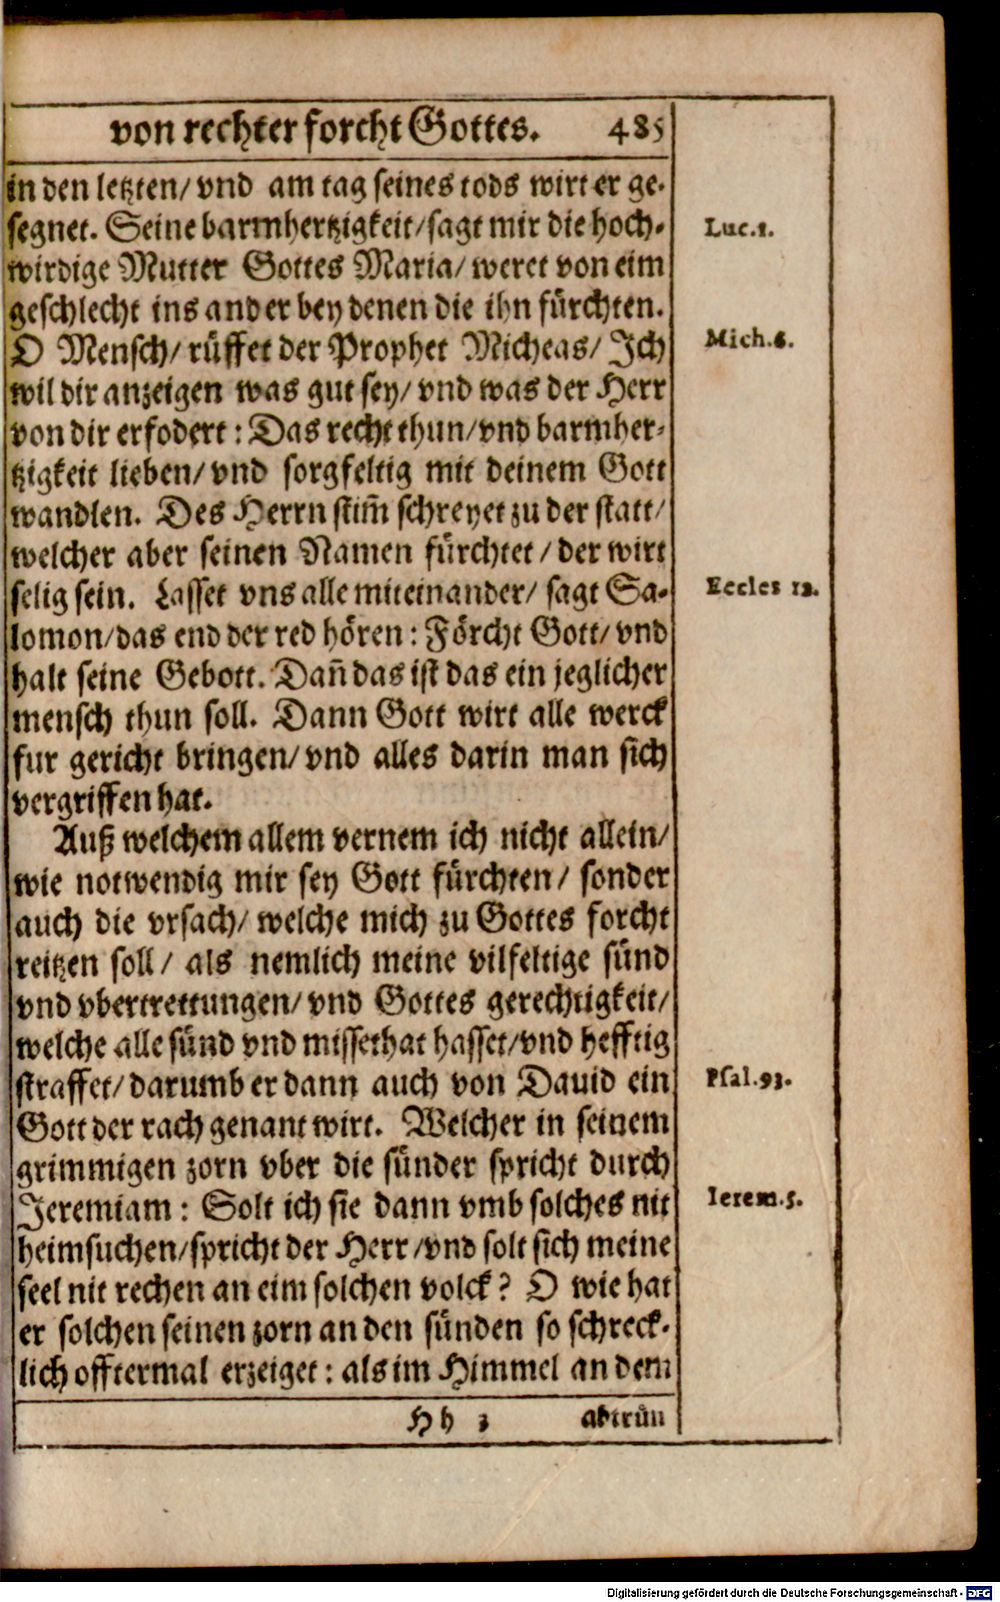 von rechter forcht Gottes. 485
in den letzten/ vnd am tag seines tods wirt er ge-
segnet. Seine barmhertzigkeit/ sagt mir die hoch-
wirdige Mutter Gottes Maria/ weret von eim
geschlecht ins ander bey denen die ihn fürchten.
O Mensch/ rüffet der Prophet Micheas/ Ich
wil dir anzeigen was gut sey/ vnd was der Herr
von dir erfodert: Das recht thun/ vnd barmher-
tzigkeit lieben/ vnd sorgfeltig mit deinem Gott
wandlen. Des Herrn stim̃ schreyet zu der statt/
welcher aber seinen Namen fürchtet/ der wirt
selig sein. Lasset vns alle miteinander/ sagt Sa-
lomon/ das end der red hören: Förcht Gott/ vnd
halt seine Gebott. Dan̄ das ist das ein jeglicher
mensch thun soll. Dann Gott wirt alle werck
fur gericht bringen/ vnd alles darin man sich
vergriffen hat.
Auß welchem allem vernem ich nicht allein/
wie notwendig mir sey Gott fürchten/ sonder
auch die vrsach/ welche mich zu Gottes forcht
reitzen soll/ als nemlich meine vilfeltige sünd
vnd vbertrettungen/ vnd Gottes gerechtigkeit/
welche alle sünd vnd missethat hasset/ vnd hefftig
straffet/ darumb er dann auch von Dauid ein
Gott der rach genant wirt. Welcher in seinem
grimmigen zorn vber die sünder spricht durch
Jeremiam: Solt ich sie dann vmb solches nit
heimsuchen/ spricht der Herr/ vnd solt sich meine
seel nit rechen an eim solchen volck? O wie hat
er solchen seinen zorn an den sünden so schreck-
lich offtermal erzeiget: als im Himmel an dem
Hh 3 abtrün
Luc.1.
Mich.6.
Eccles 12.
Psal.93.
Ierem.5.
Digitalisierung gefördert durch die Deutsche Forschungsgemeinschaft - DFG